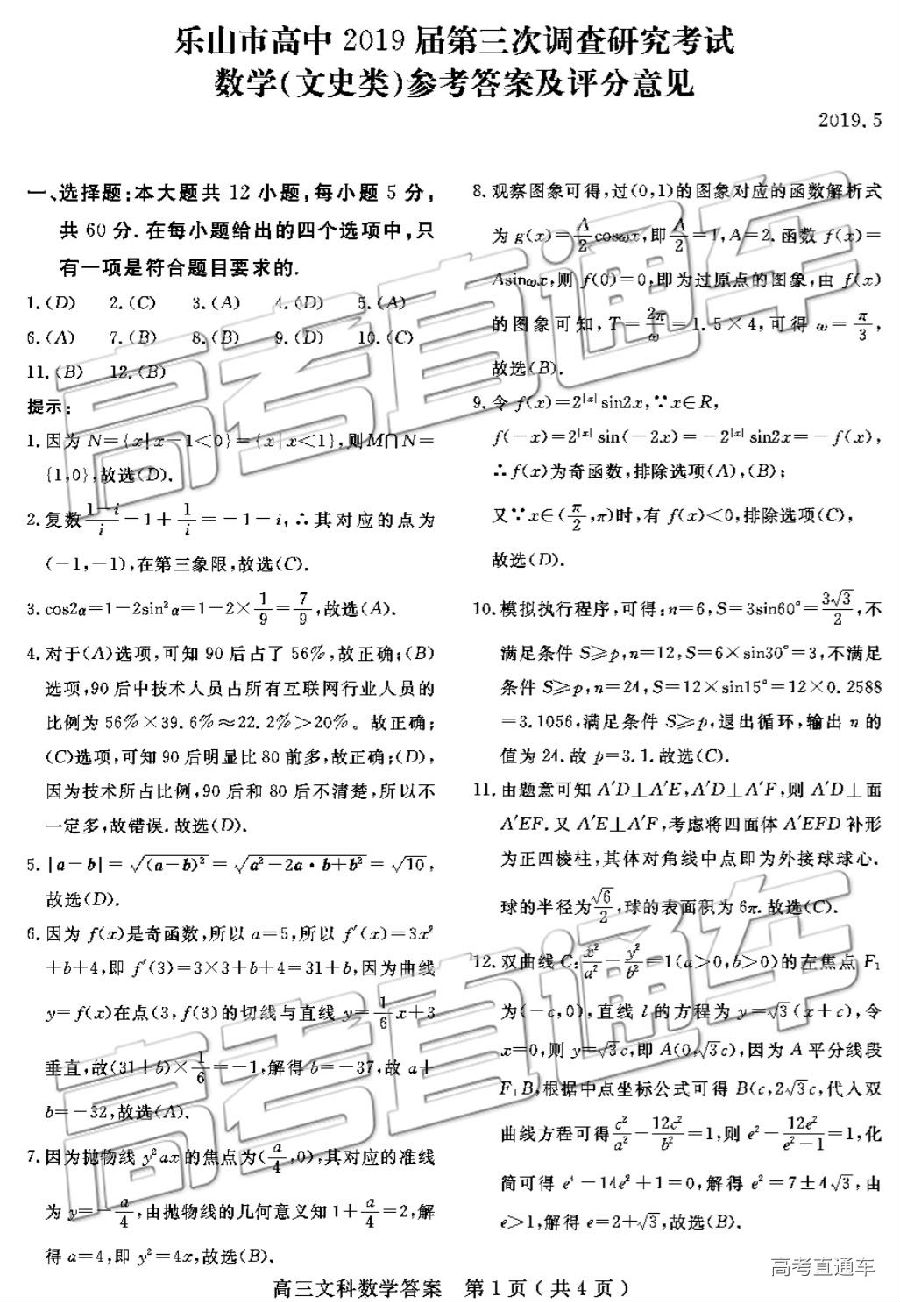 乐山市高中 2019 届第三次调查研究考试
数学(文史类)参考答案及评分意见
2019.5
一、选择题:本大题共 12 小题,每小题 5 分,
共 60 分.在每小题给出的四个选项中,只
有一项是符合题目要求的.
1.(D) 2.(C) 3.(A) 4.(D) 5.(A)
6.(A) 7.(B) 8.(B) 9.(D) 10.(C)
11.(B) 12.(B)
提示:
1.因为 N={x|x-1<0}={x|x<1},则M∩N=
{1,0},故选(D).
2.复数 (1-i)/i -1+ 1/i =-1-i,∴其对应的点为
(-1,-1),在第三象限,故选(C).
3.cos2α=1-2sin²α=1-2× 1/9 = 7/9 ,故选(A).
4.对于(A)选项,可知 90 后占了 56%,故正确;(B)
选项,90 后中技术人员占所有互联网行业人员的
比例为 56%×39.6%≈22.2%>20%。故正确;
(C)选项,可知 90 后明显比 80 前多,故正确;(D),
因为技术所占比例,90 后和 80 后不清楚,所以不
一定多,故错误.故选(D).
5.|a-b|=√(a-b)²=√a²-2a·b+b²=√10,
故选(D).
6.因为 f(x)是奇函数,所以 a=5,所以 f′(x)=3x²
+b+4,即 f′(3)=3×3+b+4=31+b,因为曲线
y=f(x)在点(3,f(3)的切线与直线 y= 1/6 x+3
垂直,故(31+b)× 1/6 =-1,解得 b=-37,故 a+
b=-32,故选(A).
7.因为抛物线 y²ax 的焦点为( a/4 ,0),其对应的准线
为 y=- a/4 ,由抛物线的几何意义知 1+ a/4 =2,解
得 a=4,即 y²=4x,故选(B).
8.观察图象可得,过(0,1)的图象对应的函数解析式
为 g(x)= A/2 cosωx,即 A/2 =1,A=2.函数 f(x)=
Asinωx,则 f(0)=0,即为过原点的图象,由 f(x)
的图象可知,T= 2π/ω =1.5×4,可得 ω= π/3 ,
故选(B).
9.令 f(x)=2^|x| sin2x,∵x∈R,
f(-x)=2^|x| sin(-2x)=-2^|x| sin2x=-f(x),
∴f(x)为奇函数,排除选项(A),(B);
又∵x∈( π/2 ,π)时,有 f(x)<0,排除选项(C),
故选(D).
10.模拟执行程序,可得:n=6,S=3sin60°= 3√3/2 ,不
满足条件 S≥p,n=12,S=6×sin30°=3,不满足
条件 S≥p,n=24,S=12×sin15°=12×0.2588
=3.1056,满足条件 S≥p,退出循环,输出 n 的
值为 24.故 p=3.1.故选(C).
11.由题意可知 A′D⊥A′E,A′D⊥A′F,则 A′D⊥面
A′EF.又 A′E⊥A′F,考虑将四面体 A′EFD 补形
为正四棱柱,其体对角线中点即为外接球球心.
球的半径为 √6/2 ,球的表面积为 6π.故选(C).
12.双曲线 C: x²/a² - y²/b² =1(a>0,b>0)的左焦点 F₁
为(-c,0),直线 l 的方程为 y=√3(x+c),令
x=0,则 y=√3c,即 A(0,√3c),因为 A 平分线段
F₁B,根据中点坐标公式可得 B(c,2√3c,代入双
曲线方程可得 c²/a² - 12c²/b² =1,则 e²- 12e²/(e²-1) =1,化
简可得 e⁴-14e²+1=0,解得 e²=7±4√3,由
e>1,解得 e=2+√3,故选(B).
高三文科数学答案 第 1 页(共 4 页)
高考直通车
高考直通车
高考直通车